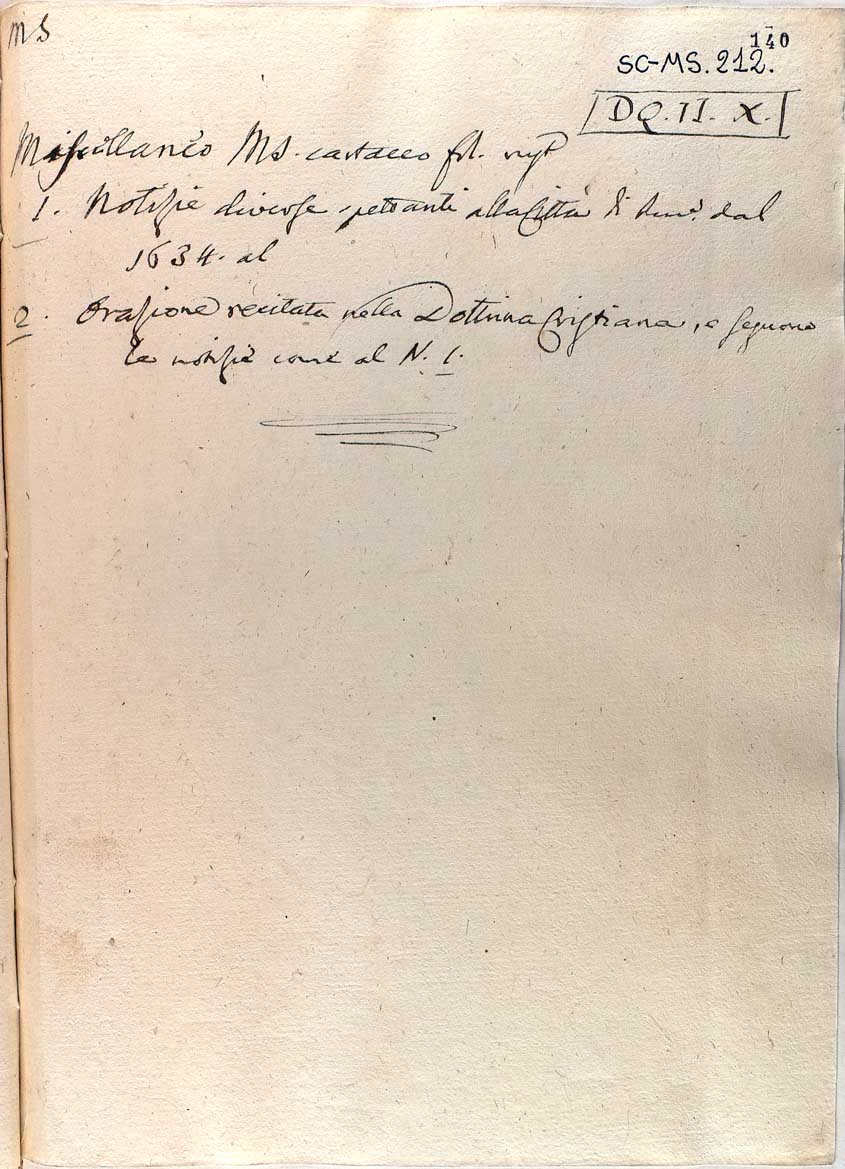 MS
140
SC-MS. 212.
DQ. II. X.
Miscellaneo MS. cartaceo
1. Notizie diverse spettanti alla Città di Rim.ⁱ dal
1634. al
2. Orazione recitata nella Dottrina Cristiana, e seguono
le notizie come al N. 1.